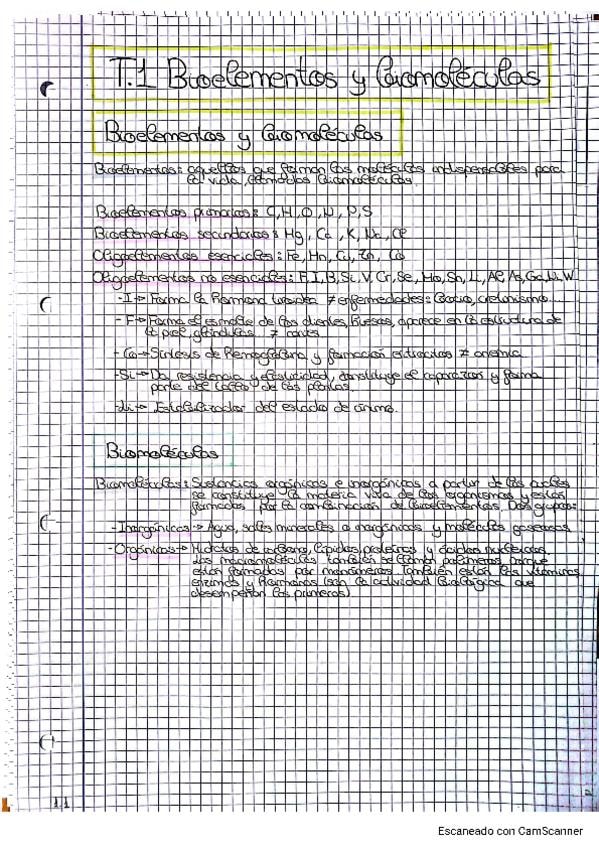 T.1 Bioelementos y biomoléculas
Bioelementos y biomoléculas
Bioelementos: aquellos que forman las moléculas indispensables para
la vida, llamadas biomoléculas.
Bioelementos primarios: C, H, O, N, P, S
Bioelementos secundarios: Mg, Ca, K, Na, Cl
Oligoelementos esenciales: Fe, Mn, Cu, Zn, Co
Oligoelementos no esenciales: F, I, B, Si, V, Cr, Se, Mo, Sn, Li, Al, As, Ga, Ni, W
-I→ Forma la hormona tiroidea ≠ enfermedades: bocio, cretinismo.
-F→ Forma el esmalte de los dientes, huesos, aparece en la estructura de
la piel, glándulas ≠ caries
-Co→ Síntesis de hemoglobina y formación eritrocitos ≠ anemia
-Si→ Da resistencia y elasticidad, constituye el caparazón y forma
parte del tallo de las plantas.
-Li→ Estabilizador del estado de ánimo.
Biomoléculas
Biomoléculas: Sustancias orgánicas e inorgánicas a partir de las cuales
se constituye la materia viva de los organismos y están
formadas por la combinación de bioelementos. Dos grupos:
-Inorgánicos→ Agua, sales minerales o inorgánicos y moléculas gaseosas
-Orgánicos→ Hidratos de carbono, lípidos, proteínas y ácidos nucleicos.
Las macromoléculas también se llaman polímeros porque
están formadas por monómeros. También están las vitaminas,
enzimas y hormonas (son la actividad biológica que
desempeñan las primeras)
11
2
Escaneado con CamScanner